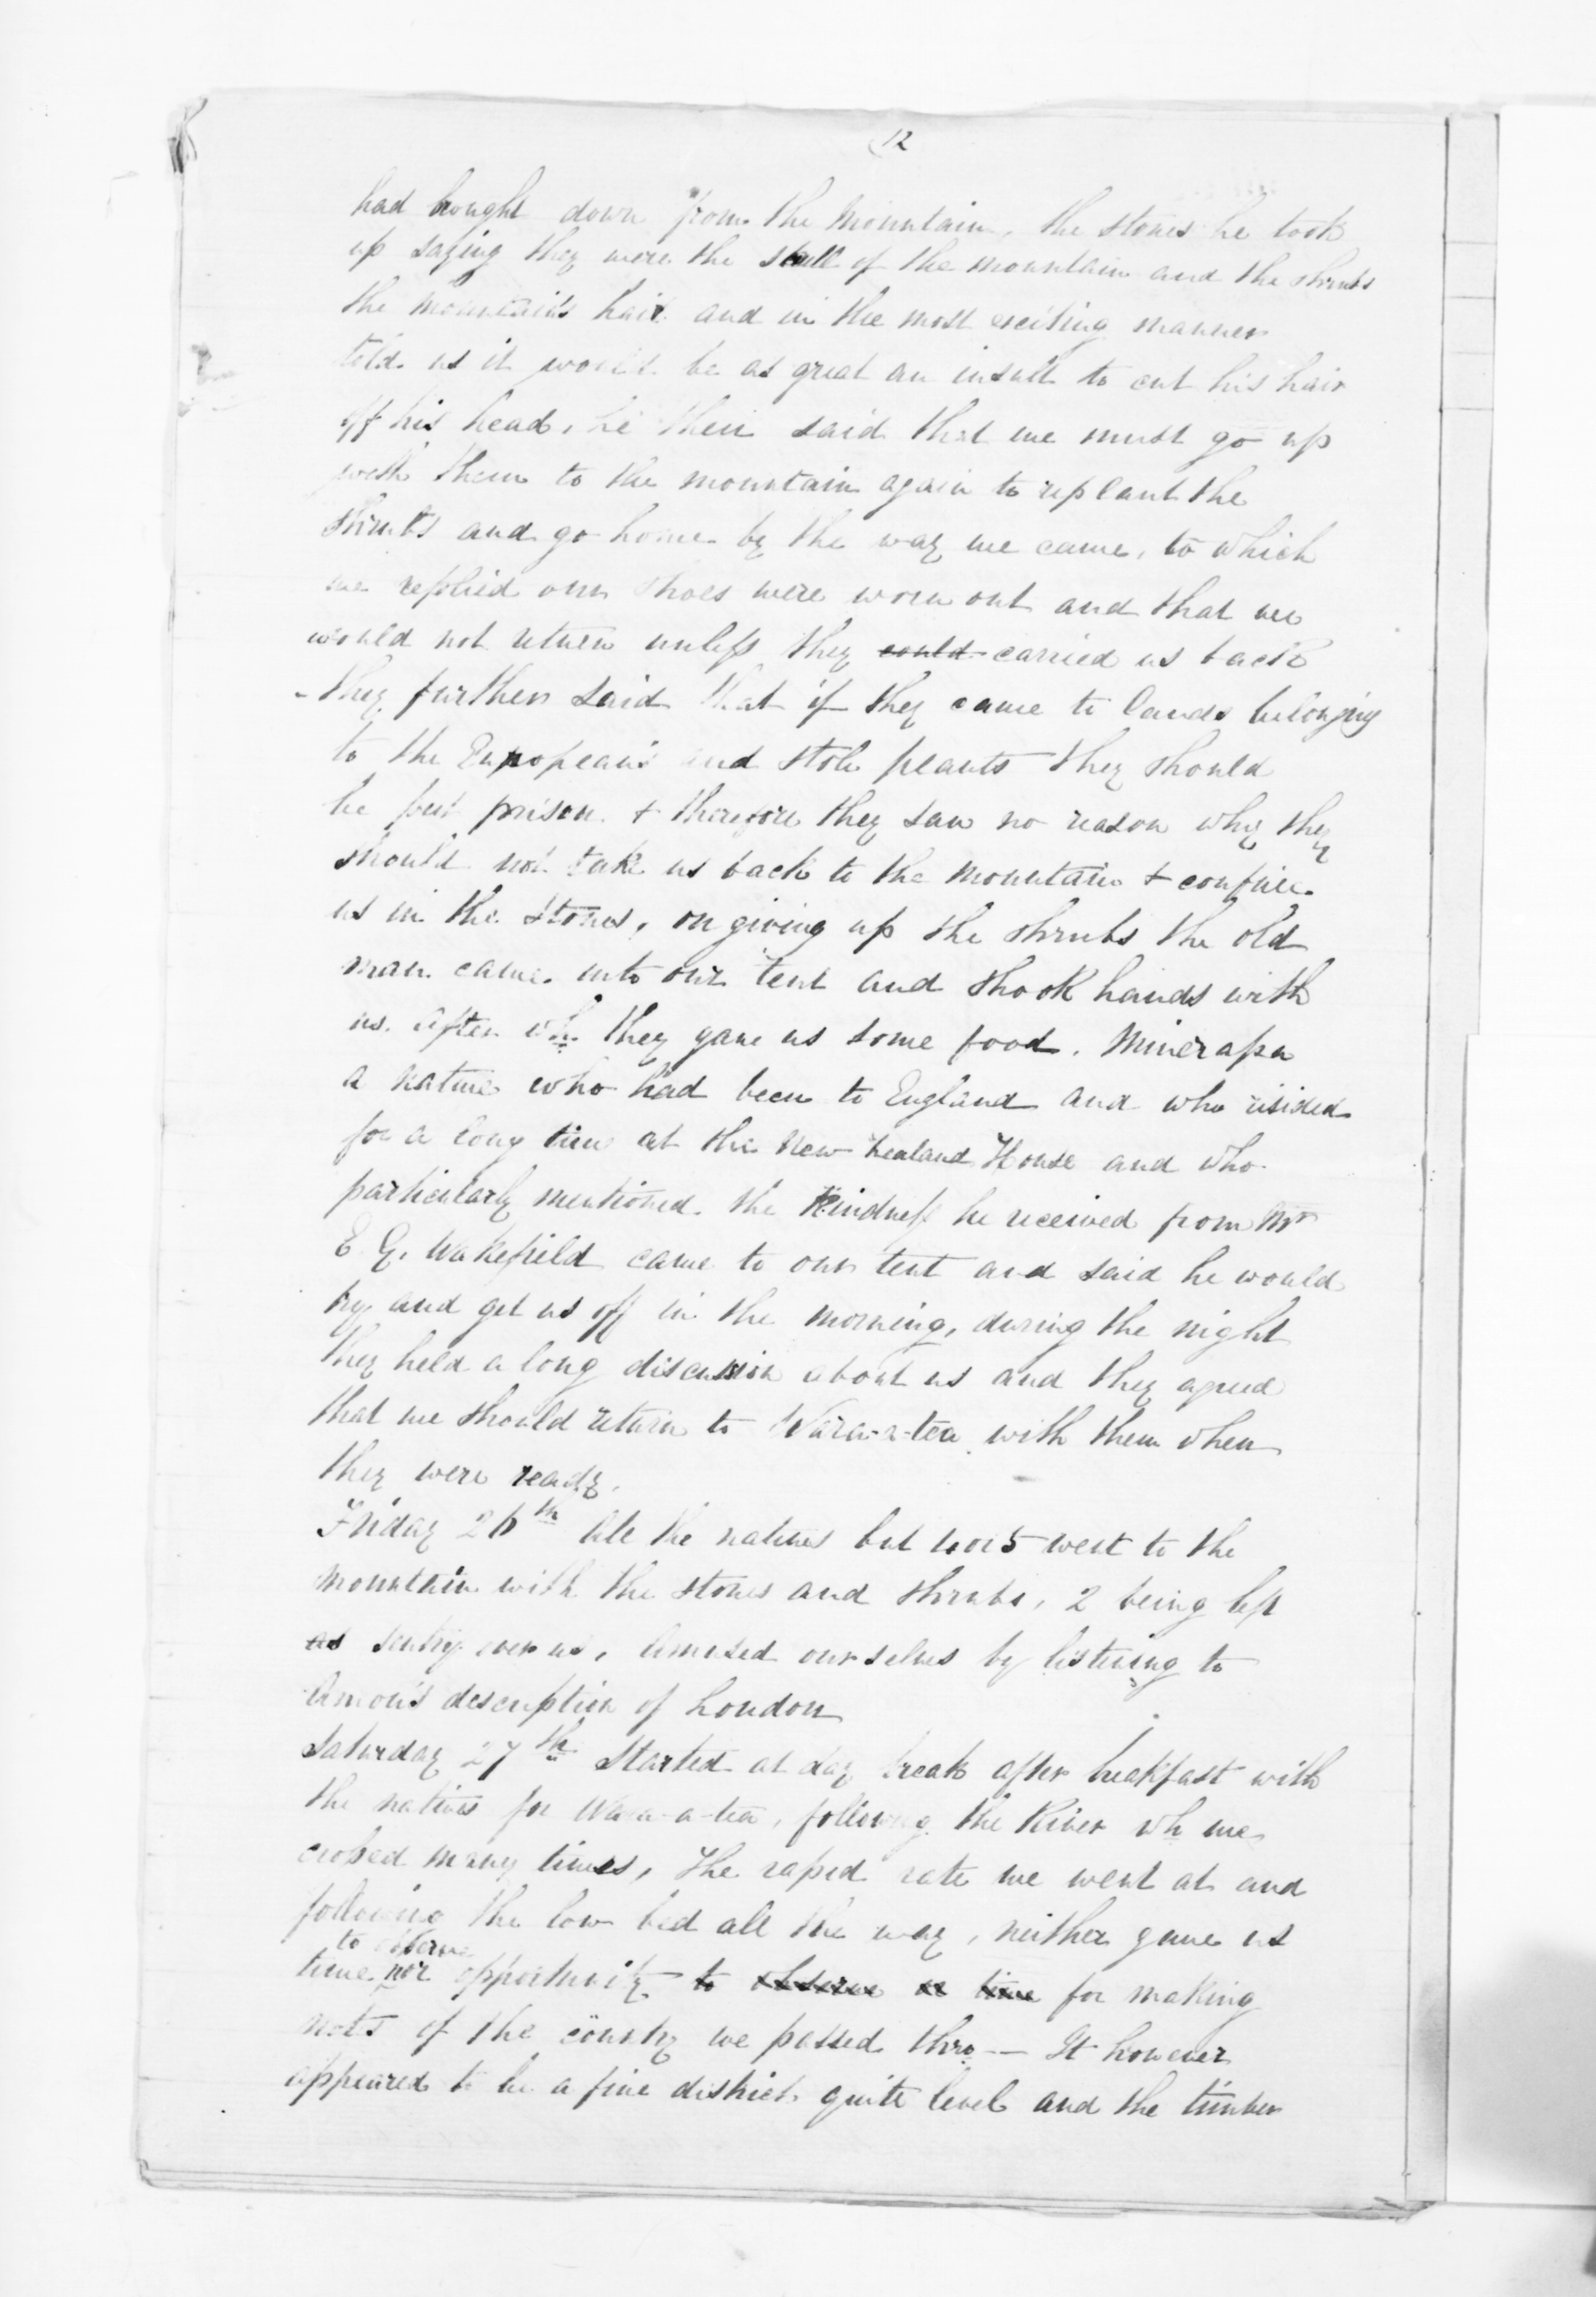 12
had brought down from the Mountain, the stones he took
up saying they were the skull of the mountain and the shrubs
the mountains hair and in the most exciting manner
told us it would be as great an insult to cut his hair
off his head, he then said that we must go up
with them to the mountain again to replant the
shrubs and go home by the way we came, to which
we replied our shoes were worn out and that we
would not return unless they could carried us back
- they further said that if they came to lands belonging
to the Europeans and stole plants they should
be put prison & therefore they saw no reason why they
should not take us back to the mountain & confine
us in the stones, on giving up the shrubs the old
man came into our tent and shook hands with
us. after wh they gave us some food. Minerapa
a native who had been to England and who resided
for a long time at the New Zealand House and who
particularly mentioned the kindness he received from Mr
E. G. Wakefield came to our tent and said he would
try and get us off in the morning, during the night
they held a long discussion about us and they agreed
that we should return to Wara-a-tea with them when
they were ready.
Friday 26th all the natives but 4 or 5 went to the
mountain with the stones and shrubs, 2 being left
as sentry over us, amused ourselves by listening to
description of London
Saturday 27th Started at day break after breakfast with
the natives for Wara-a-tea, following the River wh we
crossed many times, The rapid rate we went at and
following the low bed all the way, neither gave us
to observe
time nor opportunity to observe or time for making
notes of the country we passed thro — It however
appeared to be a fine district quite level and the timber